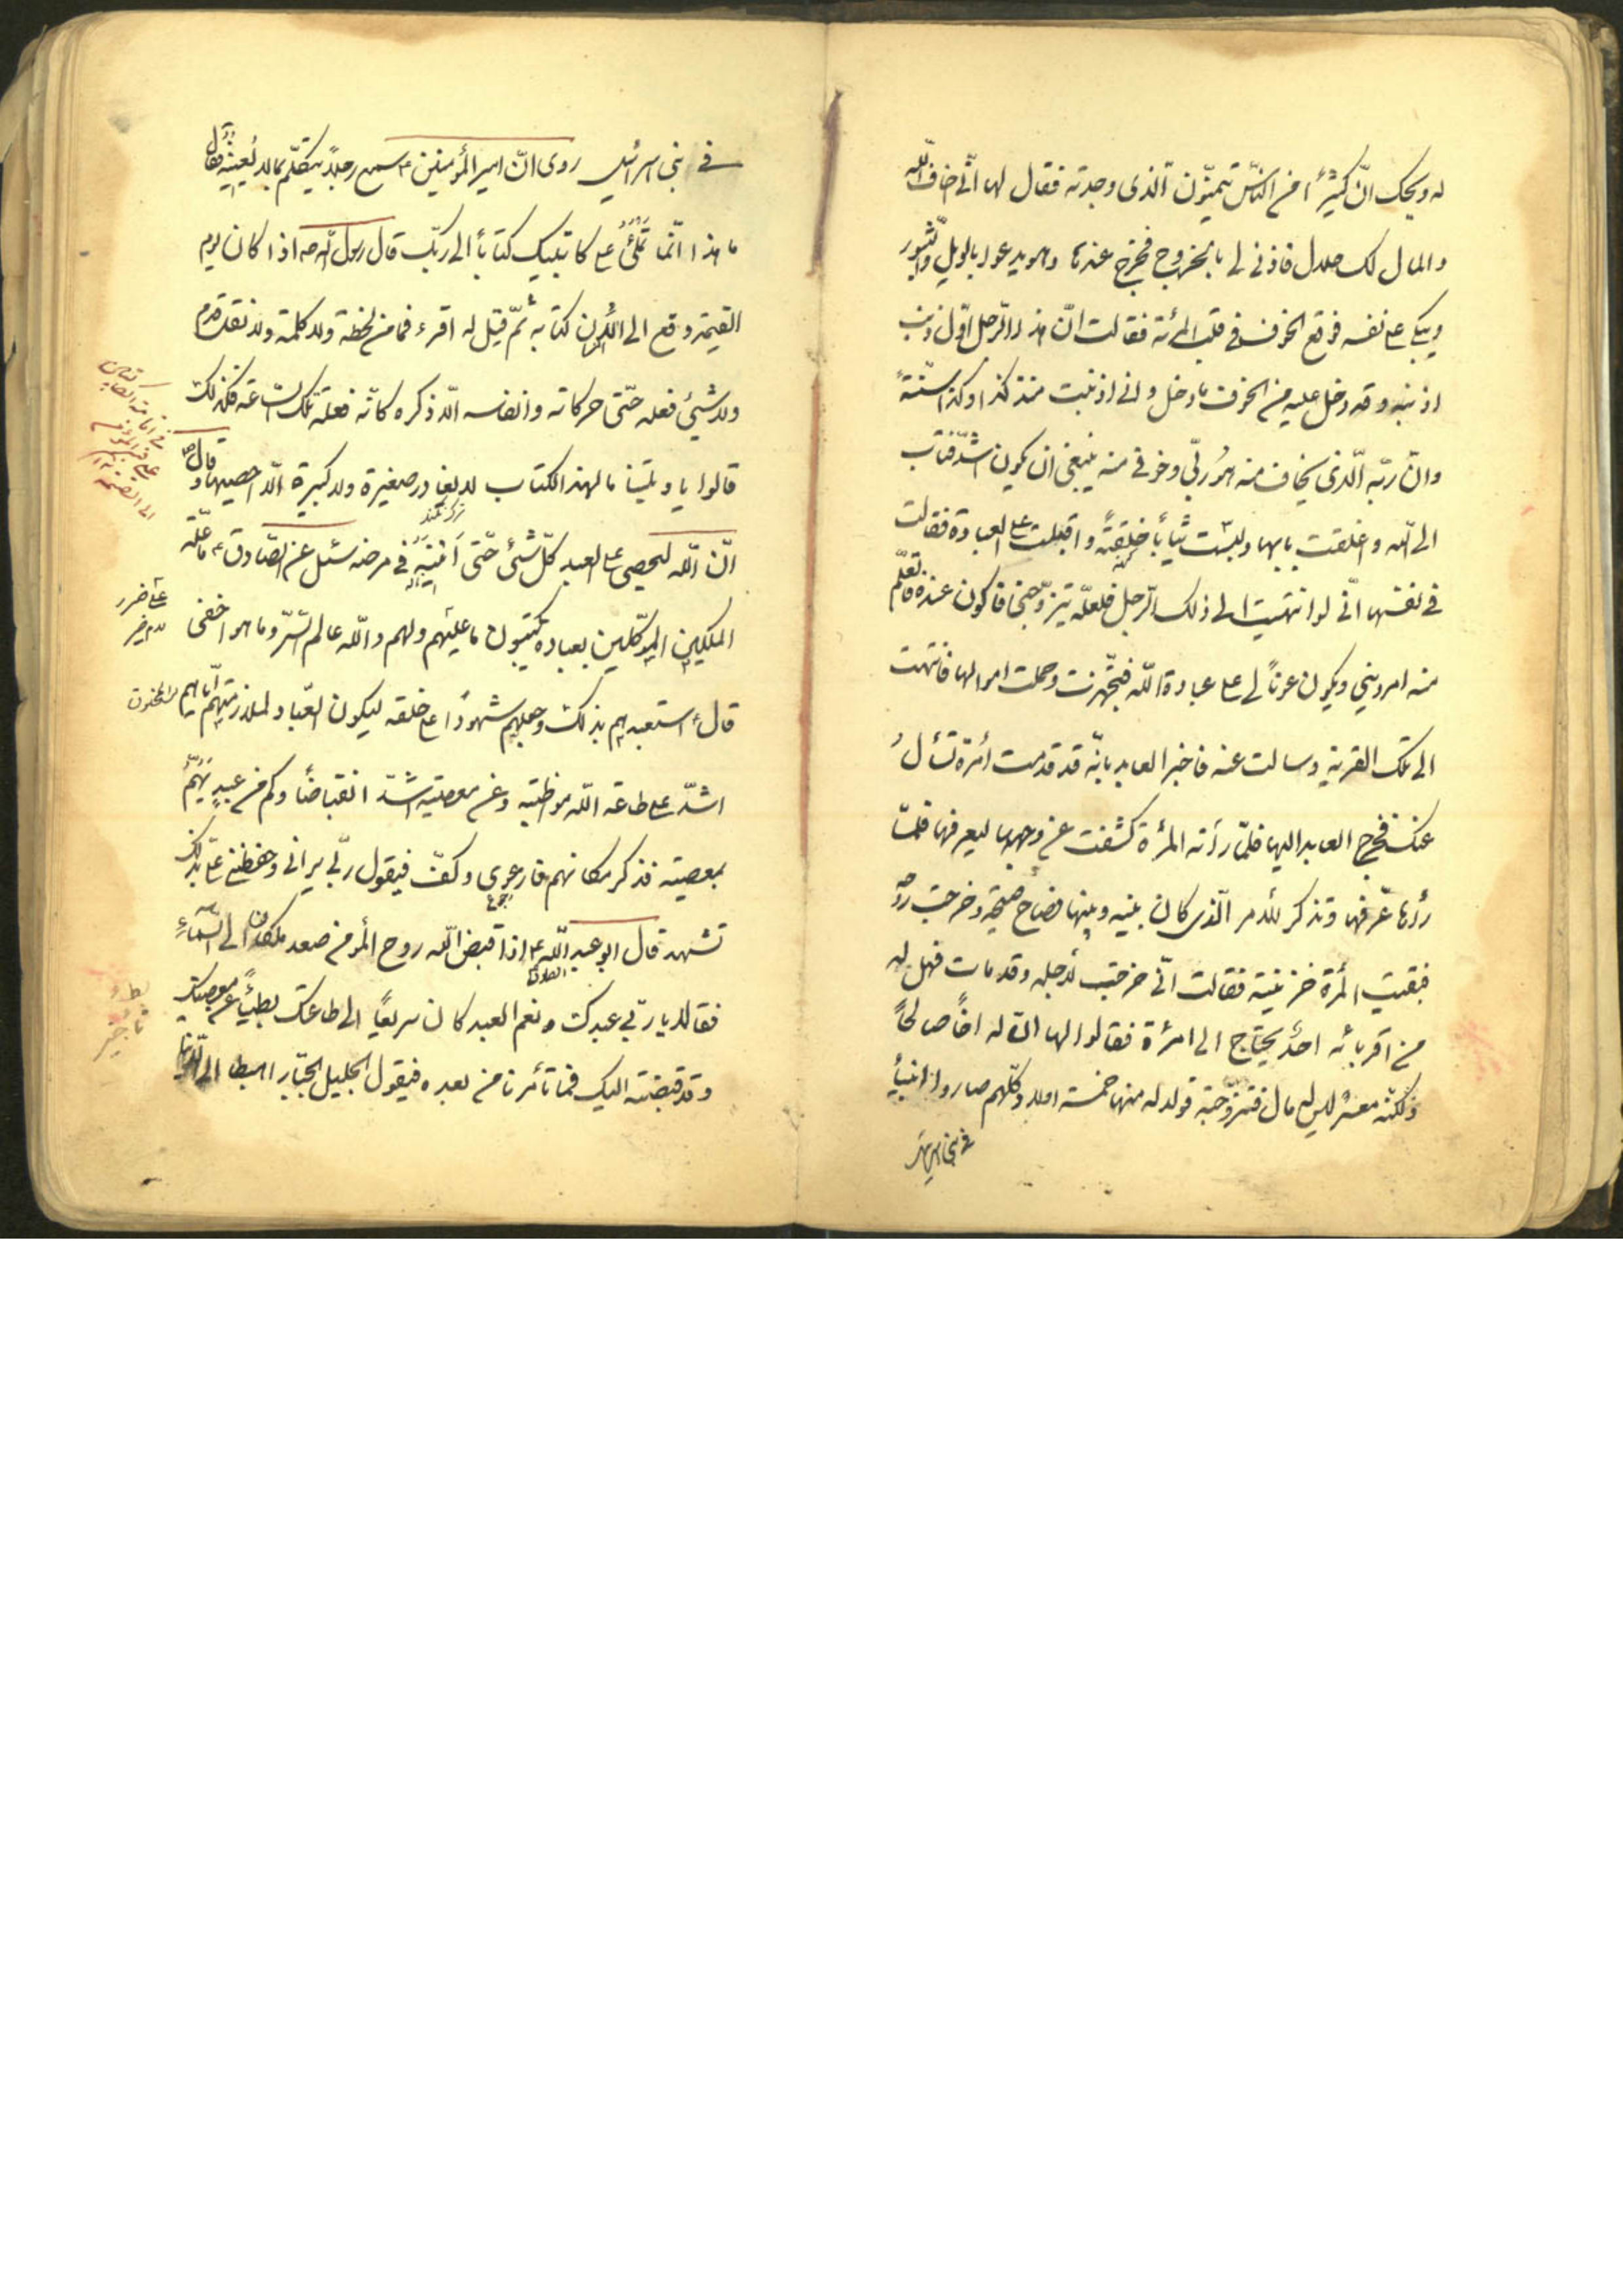 له ويحك انّ كثيراً من النّاس تيمنّون الّذى وجدته فقال لها انّى اخاف اللّه
والمال لك حلال فاذنى لى بالخروج فخرج عندها وهو يدعو بالويل والثبور
ويبكى على نفسه فوقع الخوف فى قلب المرئة فقالت انّ هذا الرّجل اوّل ذنب
اذنبه وقد دخل عليه من الخوف ما دخل وانى اذنبت منذ كذا وكذا سنة
وانّ ربّه الّذى يخاف منه هو ربّى وخوفى منه ينبغى ان يكون اشدّ فتابت
الى اللّه واغلقت بابها ولبست ثياباً خلقة واقبلت على العبادة فقالت
فى نفسها انّى لو انتهيت الى ذلك الرّجل فلعلّه يتزوّجنى فاكون عنده فاتعلّم
منه امر دينى ويكون عوناً لى على عبادة اللّه فتجهّزت وحملت اموالها فانتهت
الى تلك القرية وسالت عنه فاخبر العابد بانّه قد قدمت امرئة تسأل
عنك فخرج العابد اليها فلمّا رأته المرأة كشفت عن وجهها ليعرفها فلمّا
رأها عرفها وتذكر الامر الّذى كان بينه وبينها فصاح صيحة وخرجت روحه
فبقيت المرأة حزينة فقالت انّى خرجت لاجله وقد مات فهل له
من اقربائه احد يحتاج الى امرأة فقالوا لها انّ له اخاً صالحاً
ولكنّه معسر ليس له مال فتزوّجته فولد له منها خمسة اولاد وكلّهم صاروا انبياء
فى بنى اسرائيل
فى بنى اسرائيل روى انّ امير المؤمنين ع سمع رجلاً يتكلّم بما لا يعنيه فقال
ما هذا انّما تملى على كاتبيك كتاباً الى ربّك قال رسول اللّه ص اذا كان يوم
القيمة دفع الى الانسان كتابه ثمّ قيل له اقرء فما من لحظة ولا كلمة ولا نقل قدم
ولا شيئ فعله حتّى حركاته وانفاسه الّا ذكره كانّه فعله تلك السّاعة فلذلك
قالوا يا ويلتنا ما لهذا الكتاب لا يغادر صغيرة ولا كبيرة الّا احصيها وقال ص
انّ اللّه ليحصى على العبد كلّ شئ حتّى انينه فى مرضه سئل عن الصّادق ع ما علّة
الملكين الموكّلين بعباده يكتبون ما عليهم ولهم واللّه عالم السّرّ وما هو اخفى
على ضرر
قال ع استعبدهم بذلك وجعلهم شهوداً على خلقه ليكون العباد لملازمتهم ايّاهم
اشدّ على طاعة اللّه مواظبة وعن معصيته اشدّ انقباضاً وكم من عبد يهمّ
بمعصيته فذكر مكانهم فارعوى وكفّ فيقول ربّى يرانى وحفظتى علىّ بذلك
تشهد قال ابو عبد اللّه ع اذا قبض اللّه روح المؤمن صعد ملكان الى السّماء
الصادق
فقالا يا ربّ عبدك ونعم العبد كان سريعاً الى طاعتك بطيئاً عن معصيتك
وقد قبضته اليك فما تأمرنا من بعده فيقول الجليل الجبّار اهبطا الى الدّنيا